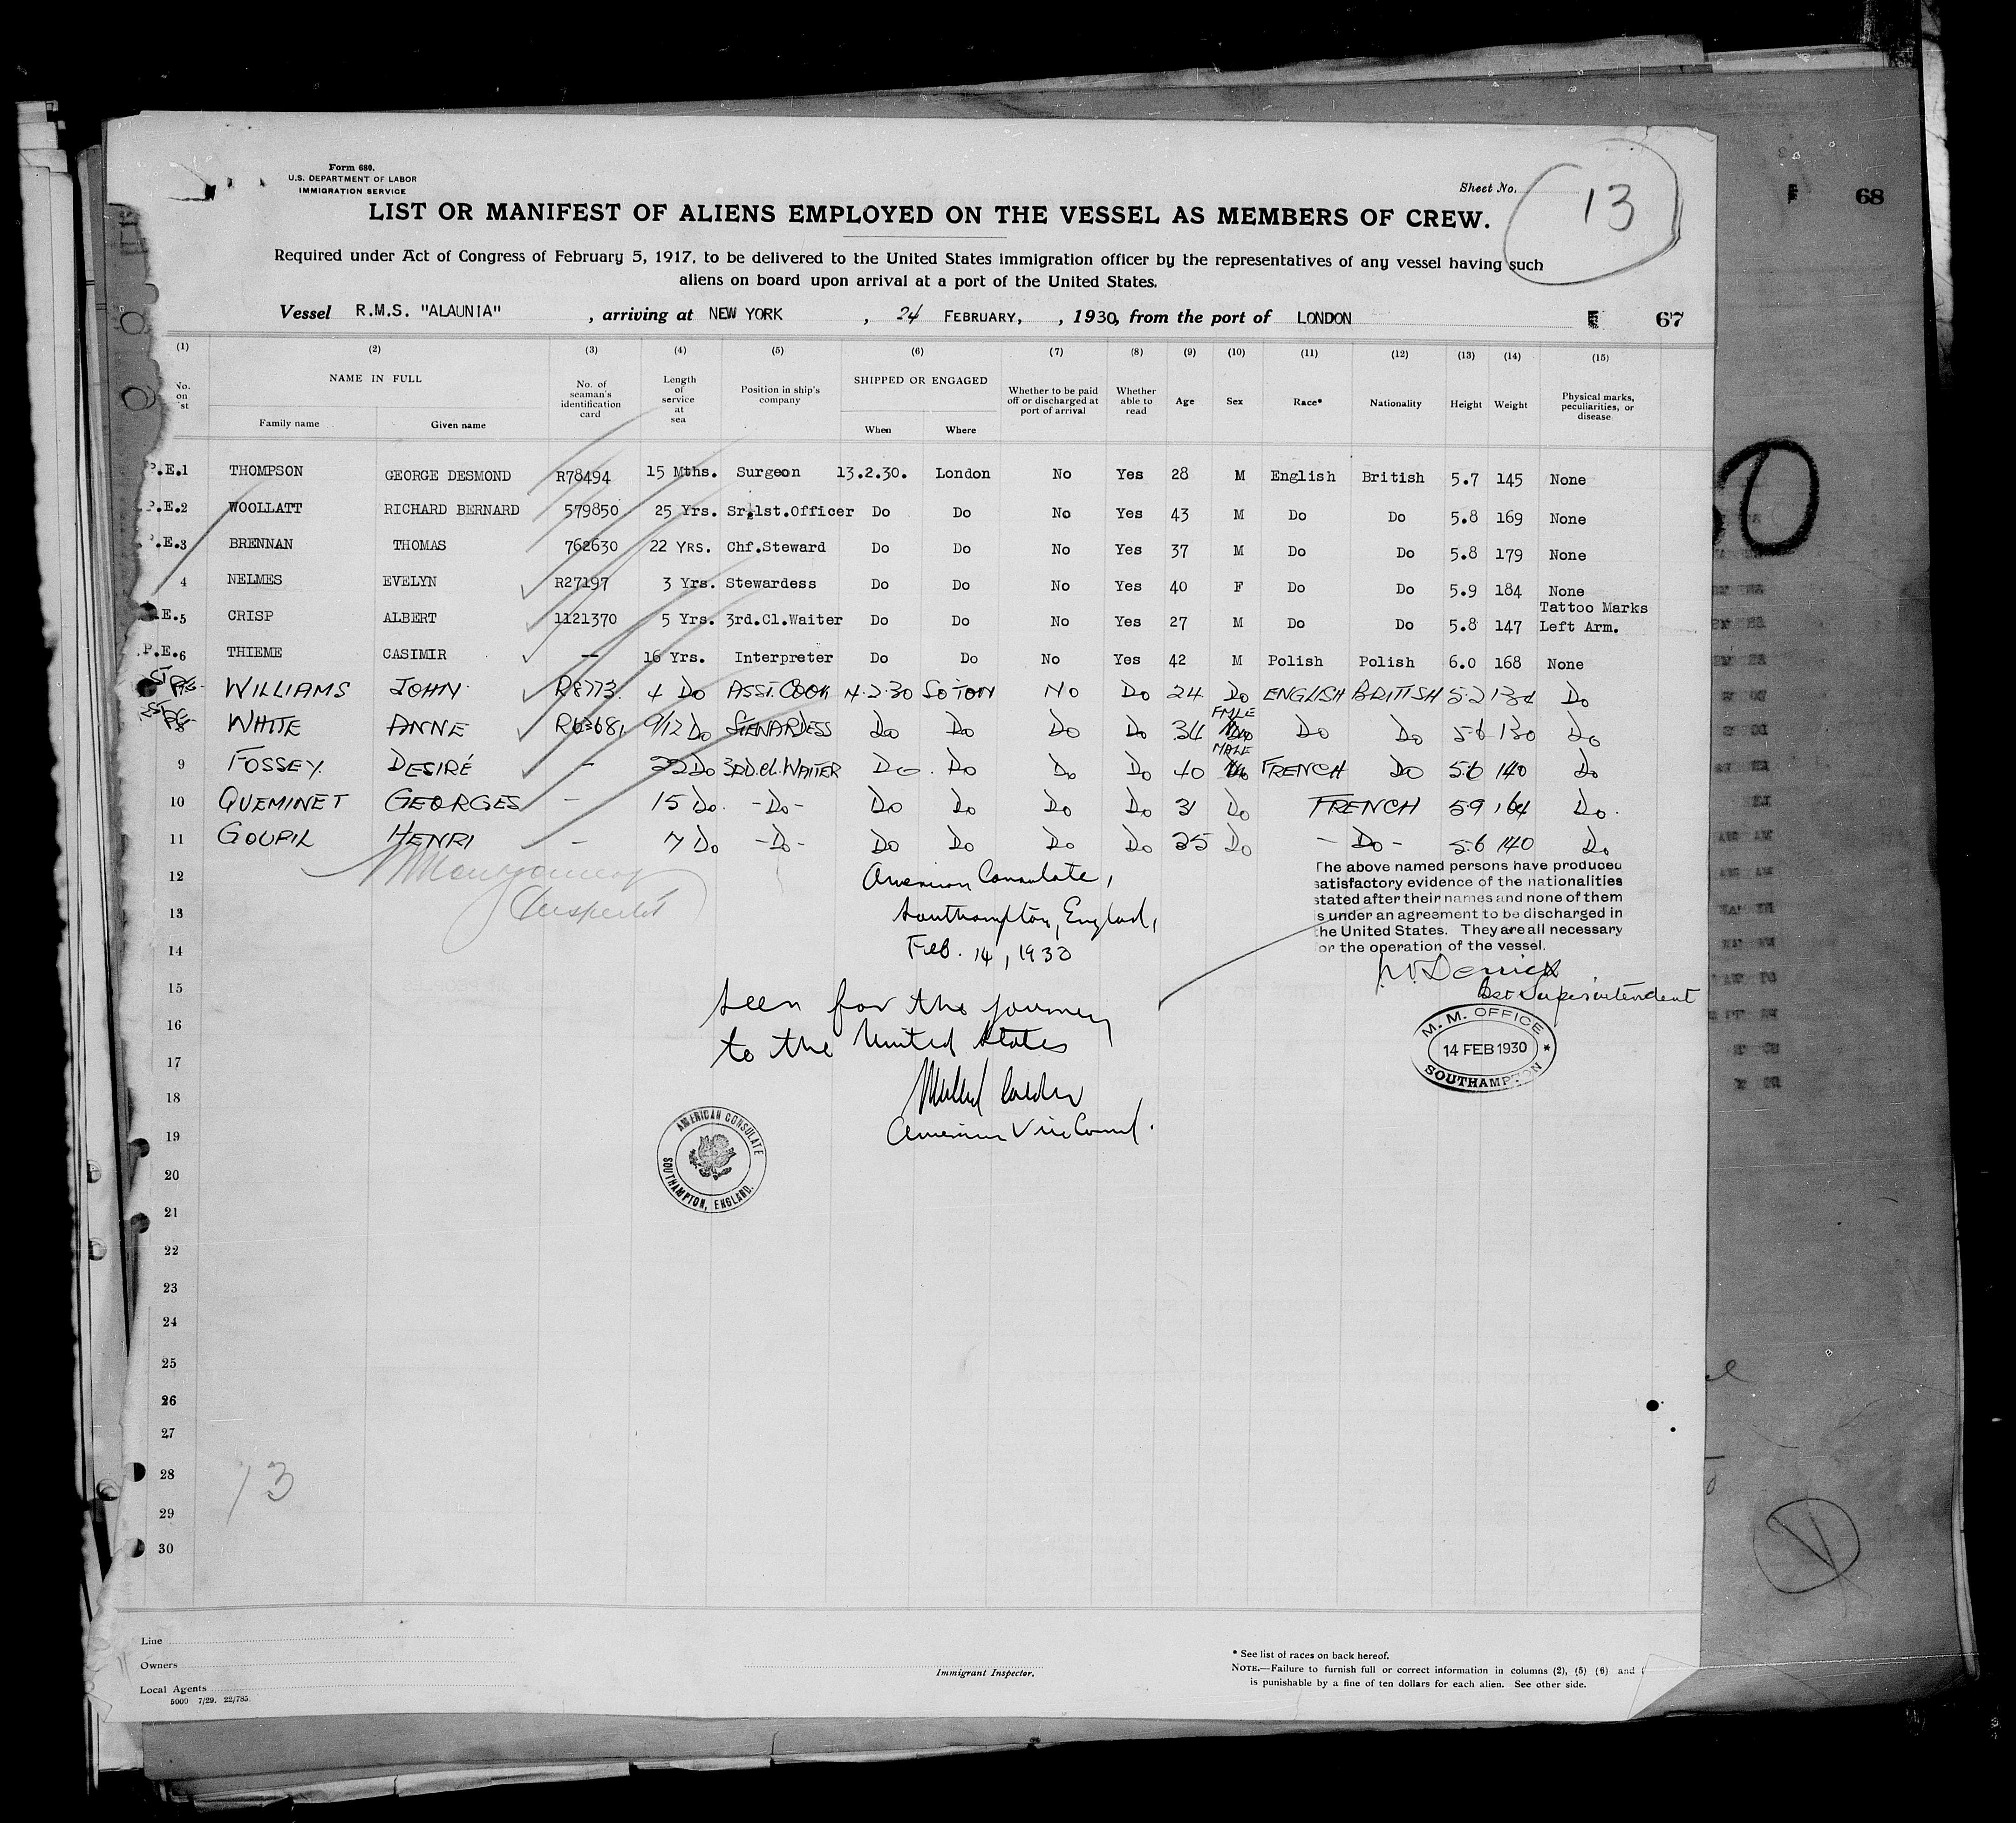 Form 680.
U.S. DEPARTMENT OF LABOR
IMMIGRATION SERVICE
Sheet No. 13
LIST OR MANIFEST OF ALIENS EMPLOYED ON THE VESSEL AS MEMBERS OF CREW.
Required under Act of Congress of February 5, 1917, to be delivered to the United States immigration officer by the representatives of any vessel having such
aliens on board upon arrival at a port of the United States.
Vessel R.M.S. "ALAUNIA", arriving at NEW YORK, 24 FEBRUARY, , 1930, from the port of LONDON 67
68
(1) (2) (3) (4) (5) (6) (7) (8) (9) (10) (11) (12) (13) (14) (15)
No. on NAME IN FULL Family name Given name No. of seaman's identification card Length of service at sea Position in ship's company SHIPPED OR ENGAGED When Where Whether to be paid off or discharged at port of arrival Whether able to read Age Sex Race* Nationality Height Weight Physical marks, peculiarities, or disease
P.E.1 THOMPSON GEORGE DESMOND R78494 15 Mths. Surgeon 13.2.30. London No Yes 28 M English British 5.7 145 None
P.E.2 WOOLLATT RICHARD BERNARD 579850 25 Yrs. Sr.1st.Officer Do Do No Yes 43 M Do Do 5.8 169 None
P.E.3 BRENNAN THOMAS 762630 22 YRS. Chf.Steward Do Do No Yes 37 M Do Do 5.8 179 None
4 NELMES EVELYN R27197 3 Yrs. Stewardess Do Do No Yes 40 F Do Do 5.9 184 None
.E.5 CRISP ALBERT 1121370 5 Yrs. 3rd.Cl.Waiter Do Do No Yes 27 M Do Do 5.8 147 Tattoo Marks Left Arm.
P.E.6 THIEME CASIMIR — 16 Yrs. Interpreter Do Do No Yes 42 M Polish Polish 6.0 168 None
WILLIAMS JOHN R8773. 4 Do ASST. COOK 14.2.30 SO'TON NO Do 24 Do ENGLISH BRITISH 5.2 134 Do
8 WHITE ANNE R63681 9/12 Do STEWARDESS Do Do Do Do 34 FMLE Do Do 5.6 130 Do
9 FOSSEY. DESIRÉ - 22 Do 3RD.CL.WAITER Do. Do Do Do 40 MALE FRENCH Do 5.6 140 Do
10 QUEMINET GEORGES - 15 Do. -Do- Do Do Do Do 31 Do FRENCH 5.9 164 Do.
11 GOUPIL HENRI - 7 Do -Do- Do Do Do Do 25 Do -Do- 5.6 140 Do
12
13
14
15
16
17
18
19
20
21
22
23
24
25
26
27
28
29
30
Montgomery
Inspector
American Consulate,
Southampton, England,
Feb. 14, 1930
Seen for the journey
to the United States
American Vice Consul.
AMERICAN CONSULATE
SOUTHAMPTON, ENGLAND.
The above named persons have produced
satisfactory evidence of the nationalities
stated after their names and none of them
is under an agreement to be discharged in
the United States. They are all necessary
for the operation of the vessel.
Superintendent
M. M. OFFICE
14 FEB 1930
SOUTHAMPTON
13
Line
Owners
Local Agents
5009 7/29. 22/785.
Immigrant Inspector.
* See list of races on back hereof.
NOTE.—Failure to furnish full or correct information in columns (2), (5) (6) and (
is punishable by a fine of ten dollars for each alien. See other side.